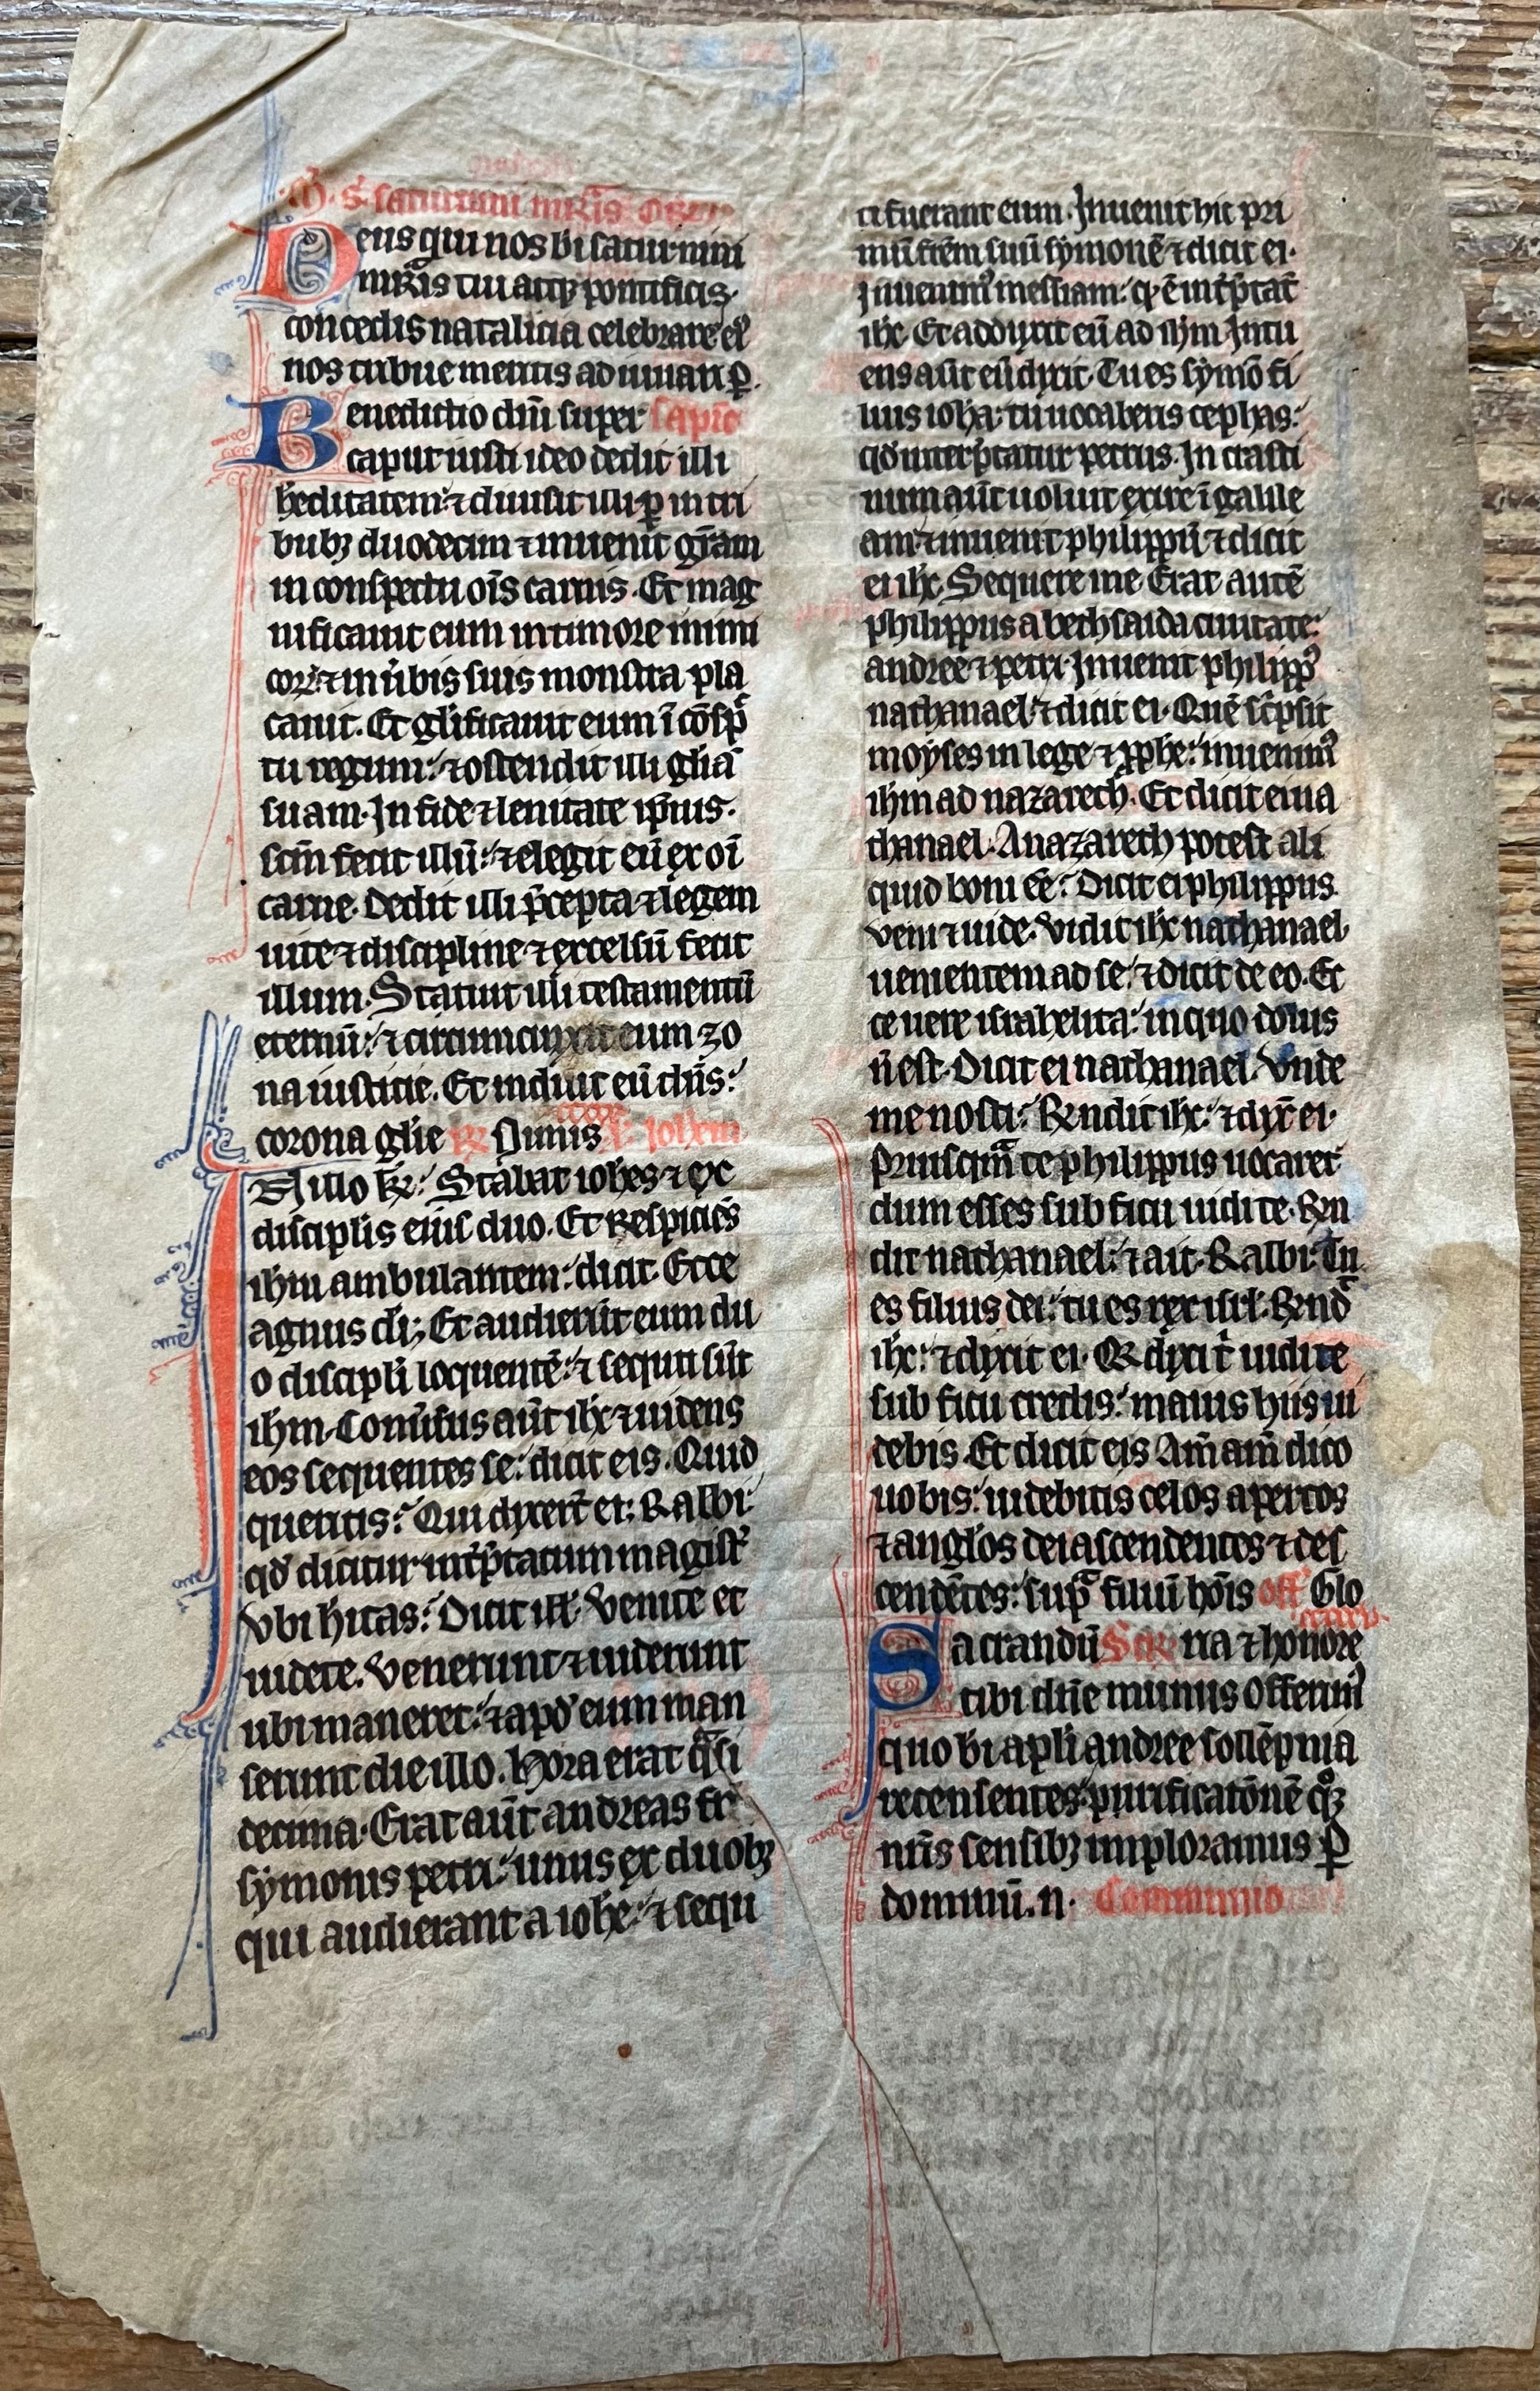 s. saturnini mris Or
Deus qui nos bi saturnini
mris tui atq; pontificis.
concedis natalicia celebrare ei
nos tribue meritis adiuuari p.
Benedictio dni super sapie
caput iusti ideo dedit illi
heditatem: ⁊ diuisit illi p̱ in tri
bubꝫ duodecim ⁊ inuenit grām
in conspectu oīs carnis. Et mag
nificauit eum in timore inimi
corꝝ: ⁊ in ūbis suis monstra pla
cauit. Et glīficauit eum ī cōsp̄c
tu regum: ⁊ ostendit illi gliā
suam. In fide ⁊ lenitate ip̄ius.
scm̄ fecit illū: ⁊ elegit eū ex oī
carne. Dedit illi p̄cepta ⁊ legem
uite ⁊ discipline ⁊ excelsū fecit
illum. Statuit illi testamentū
eternū: ⁊ circumcinxit eum zo
na iusticie. Et induit eū dns:
corona glie R̶ Iohem
In illo tꝑ: Stabat iohes ⁊ ex
discipl̄is eius duo. Et Respiciēs
ihm ambulantem: dicit. Ecce
agnus di; Et audierūt eum du
o discipli loquentē: ⁊ secuti sūt
ihm. Conūsus aūt ihc ⁊ uidens
eos sequentes se: dicit eis. Quid
queritis: Qui dixert ei: Rabbi:
qd̄ dicitur int̄p̄tatum magist̄
vbi hītas: Dicit ill: Venite et
uidete. Venerunt ⁊ uiderunt
ubi maneret: ⁊ apd̄ eum man
serunt die illo. Hora erat qͣsi
decima. Erat aūt andreas fr̄
symonis petri: unus ex duobꝫ
qui audierant a iohe: ⁊ secu
ti fuerant eum. Inuenit hic pri
mū frēm suū symonē ⁊ dicit ei.
Inuenimꝰ messiam: q̄ ē int̄p̄tat̄
ihc Et adduxit eū ad ihm Intu
ens aūt eū dixit. Tu es symō fi
lius ioha: tu uocaberis cephas:
qd̄ interp̄tatur petrus. In crasti
num aūt uoluit exire ī galile
am ⁊ inuenit philippū ⁊ dicit
ei ihc. Sequere me Erat autē
philippus a bethsaida ciuitate:
andree ⁊ petri. Inuenit philippꝰ
nathanael: ⁊ dicit ei. Quē sc̄psit
moyses in lege ⁊ p̄phe: inuenimꝰ
ihm ad nazareth. Et dicit ei na
thanael. A nazareth potest ali
quid boni ēē: Dicit ei philippus
veni ⁊ uide. Vidit ihc nathanael
uenientem ad se: ⁊ dicit de eo. Ec
ce uere israhelita: in quo dolus
n̄ est. Dicit ei nathanael. Vnde
me nosti: Rn̄dit ihc: ⁊ dix̄ ei.
Priusqͣm te philippus uocaret
dum esses sub ficu uidi te. Rn̄
dit nathanael: ⁊ ait. Rabbi: Tu
es filius dei: tu es rex isrl. Rn̄d̄
ihc: ⁊ dixit ei. Qꝛ dixi t̄ uidi te
sub ficu credis: maius hiis ui
debis. Et dicit eis Am̄ am̄ dico
uobis: uidebitis celos apertos
⁊ angl̄os dei ascendentes ⁊ des
cendētes: supͣ filiū hōis off̄ Glo
Sacrandū Scr̄ ria ⁊ honore
tibi dn̄e munus offerimꝰ
quo bi apl̄i andree sollēpnia
recensentes: purificatōnē qͦꝫ
nr̄is sensibꝫ imploramus p̱
dominū. n. Communio